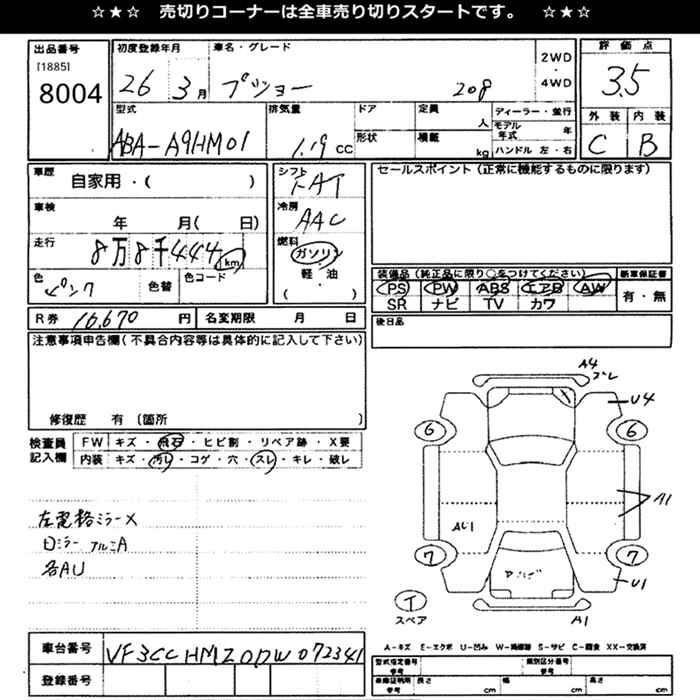 ☆★☆　売切りコーナーは全車売り切りスタートです。　☆★☆
出品番号
[1885]
8004
初度登録年月
26 3月
車名・グレード
プジョー 208
2WD
・
4WD
評価点
3.5
外装 内装
C B
型式
ABA-A9HM01
排気量
1.19 CC
ドア
形状
定員
人
積載
kg
ディーラー・並行
モデル年式 年
ハンドル 左・右
車歴
自家用・( )
車検
年 月(日)
走行
8万8千444 km
色
ピンク
色替
色コード
シフト
FAT
冷房
AAC
燃料
ガソリン
軽・油
( )
セールスポイント(正常に機能するものに限ります)
装備品(純正品に限り○をつけてください)
新車保証書
PS PW ABS エアB AW
SR ナビ TV カワ
有・無
R券 10,670 円
名変期限 月 日
後日品
注意事項申告欄(不具合内容等は具体的に記入して下さい)
修復歴 有 (箇所 )
検査員
記入欄
FW キズ・飛石・ヒビ割・リペア跡・X要
内装 キズ・汚レ・コゲ・穴・スレ・キレ・破レ
左電格ミラーX
ミラー アルミA
各AU
A4
U4
6 6
A1
AU1
7 7
U1
A1
スペア
A-キズ E-エクボ U-凹み W-補修跡 S-サビ C-腐食 XX-交換済
車台番号
VF3CCHMZ0DW072341
登録番号
型式指定番号
参考
類別区分番号
参考
車庫証明用
参考
長さ cm
幅 cm
高さ cm